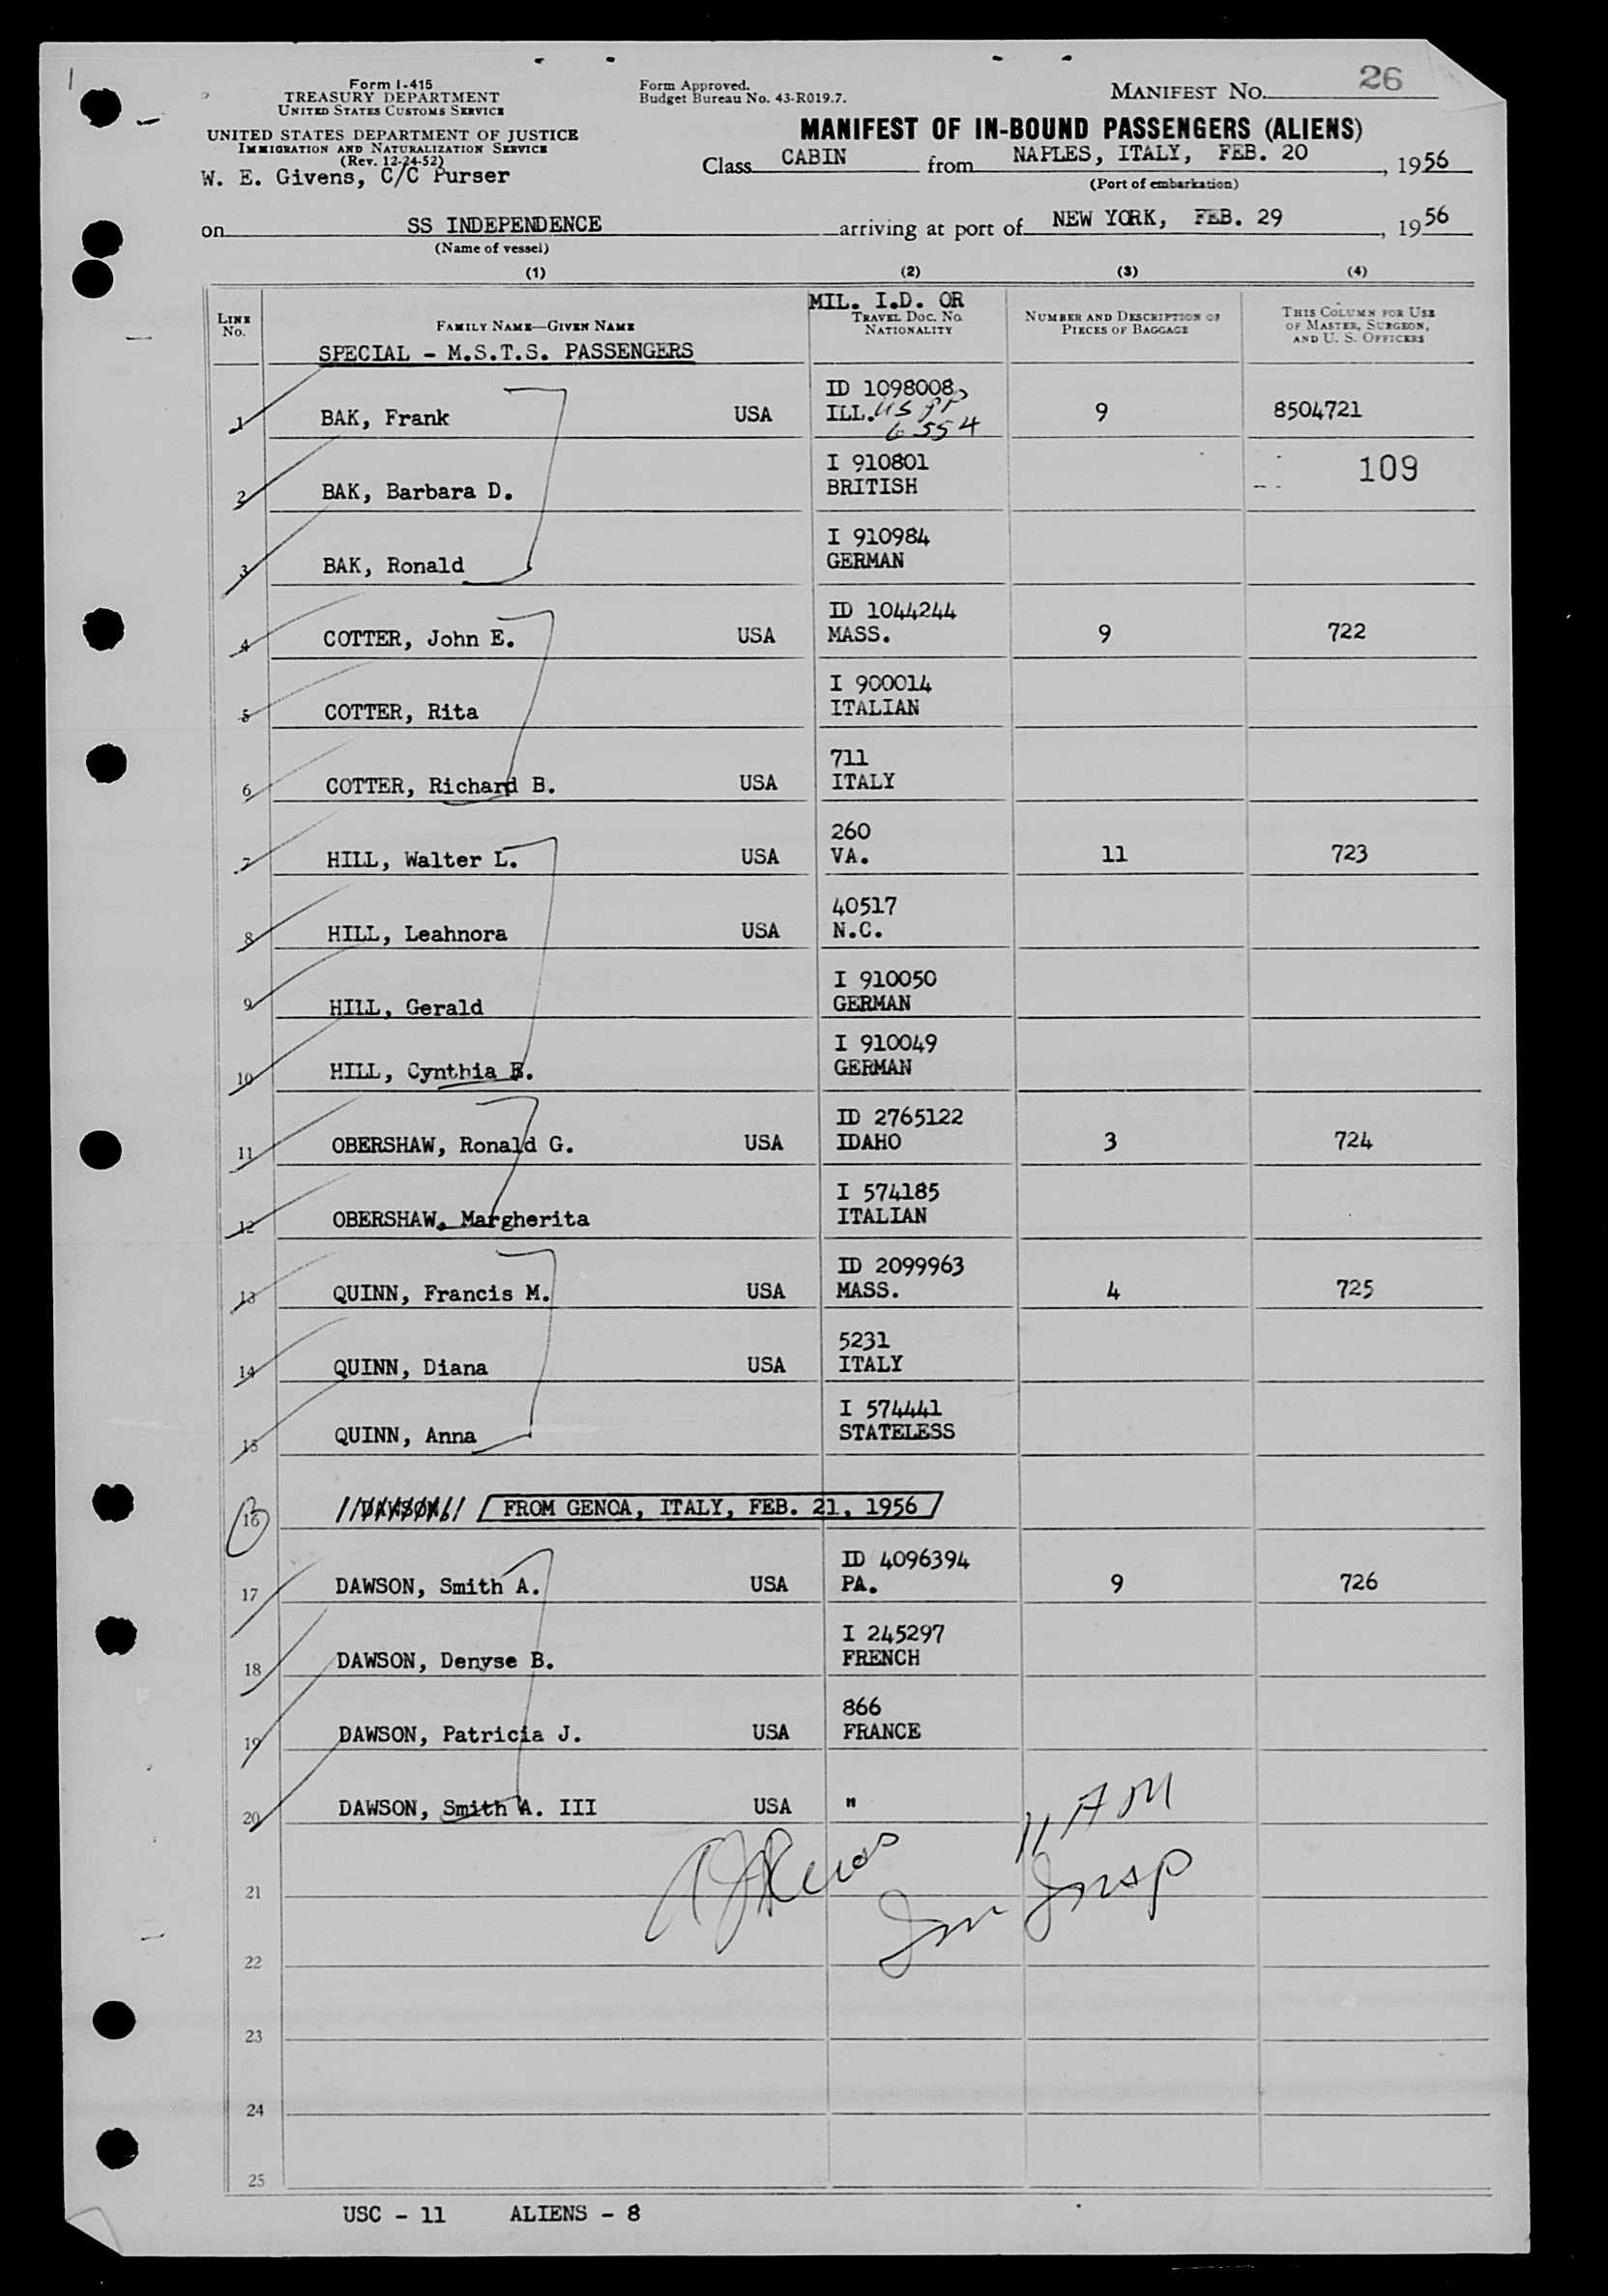 Form I-415
TREASURY DEPARTMENT
UNITED STATES CUSTOMS SERVICE
UNITED STATES DEPARTMENT OF JUSTICE
IMMIGRATION AND NATURALIZATION SERVICE
(Rev. 12-24-52)
W. E. Givens, C/C Purser
Form Approved.
Budget Bureau No. 43-R019.7.
MANIFEST NO. 26
MANIFEST OF IN-BOUND PASSENGERS (ALIENS)
Class CABIN from NAPLES, ITALY, FEB. 20, 1956
(Port of embarkation)
on SS INDEPENDENCE arriving at port of NEW YORK, FEB. 29, 1956
(Name of vessel)
(1) (2) (3) (4)
LINE No.
FAMILY NAME—GIVEN NAME
MIL. I.D. OR
TRAVEL DOC. NO.
NATIONALITY
NUMBER AND DESCRIPTION OF
PIECES OF BAGGAGE
THIS COLUMN FOR USE
OF MASTER, SURGEON,
AND U. S. OFFICERS
SPECIAL - M.S.T.S. PASSENGERS
ID 1098008
1 BAK, Frank USA ILL. US PP 9 8504721
6554
I 910801 109
2 BAK, Barbara D. BRITISH
I 910984
3 BAK, Ronald GERMAN
ID 1044244
4 COTTER, John E. USA MASS. 9 722
I 900014
5 COTTER, Rita ITALIAN
711
6 COTTER, Richard B. USA ITALY
260
7 HILL, Walter L. USA VA. 11 723
40517
8 HILL, Leahnora USA N.C.
I 910050
9 HILL, Gerald GERMAN
I 910049
10 HILL, Cynthia E. GERMAN
ID 2765122
11 OBERSHAW, Ronald G. USA IDAHO 3 724
I 574185
12 OBERSHAW, Margherita ITALIAN
ID 2099963
13 QUINN, Francis M. USA MASS. 4 725
5231
14 QUINN, Diana USA ITALY
I 574441
15 QUINN, Anna STATELESS
16 DAWSON FROM GENOA, ITALY, FEB. 21, 1956
ID 4096394
17 DAWSON, Smith A. USA PA. 9 726
I 245297
18 DAWSON, Denyse B. FRENCH
866
19 DAWSON, Patricia J. USA FRANCE
20 DAWSON, Smith A. III USA "
11 AM
Im Insp
21
22
23
24
25
USC - 11 ALIENS - 8